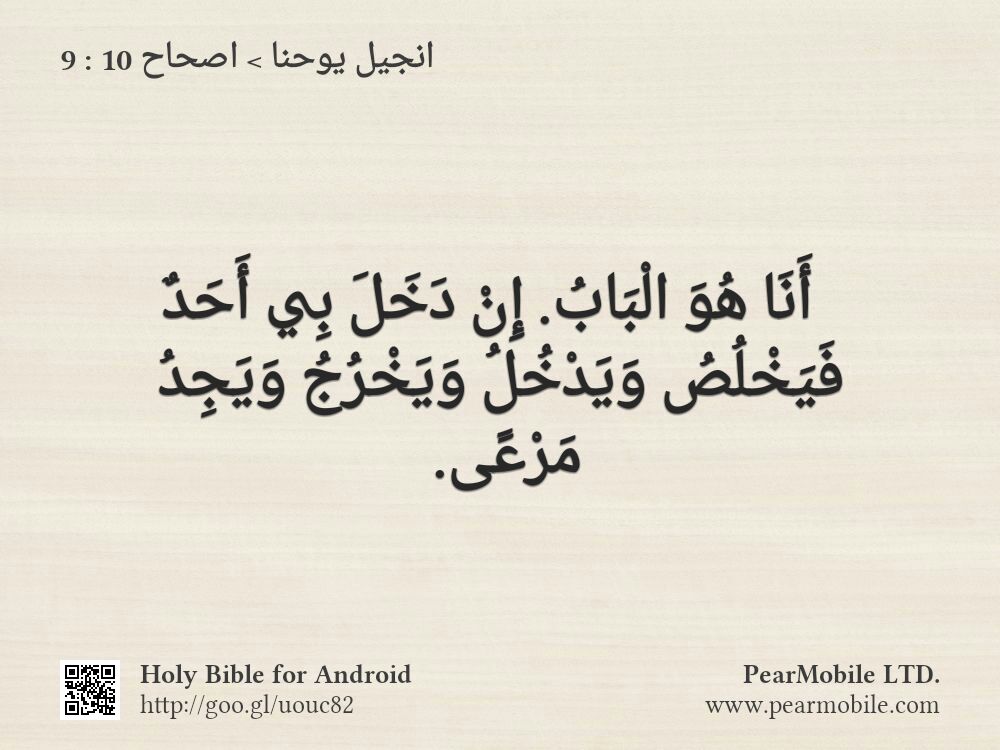 انجيل يوحنا > اصحاح 10 : 9
أَنَا هُوَ الْبَابُ. إِنْ دَخَلَ بِي أَحَدٌ
فَيَخْلُصُ وَيَدْخُلُ وَيَخْرُجُ وَيَجِدُ
مَرْعًى.
Holy Bible for Android
http://goo.gl/uouc82
PearMobile LTD.
www.pearmobile.com